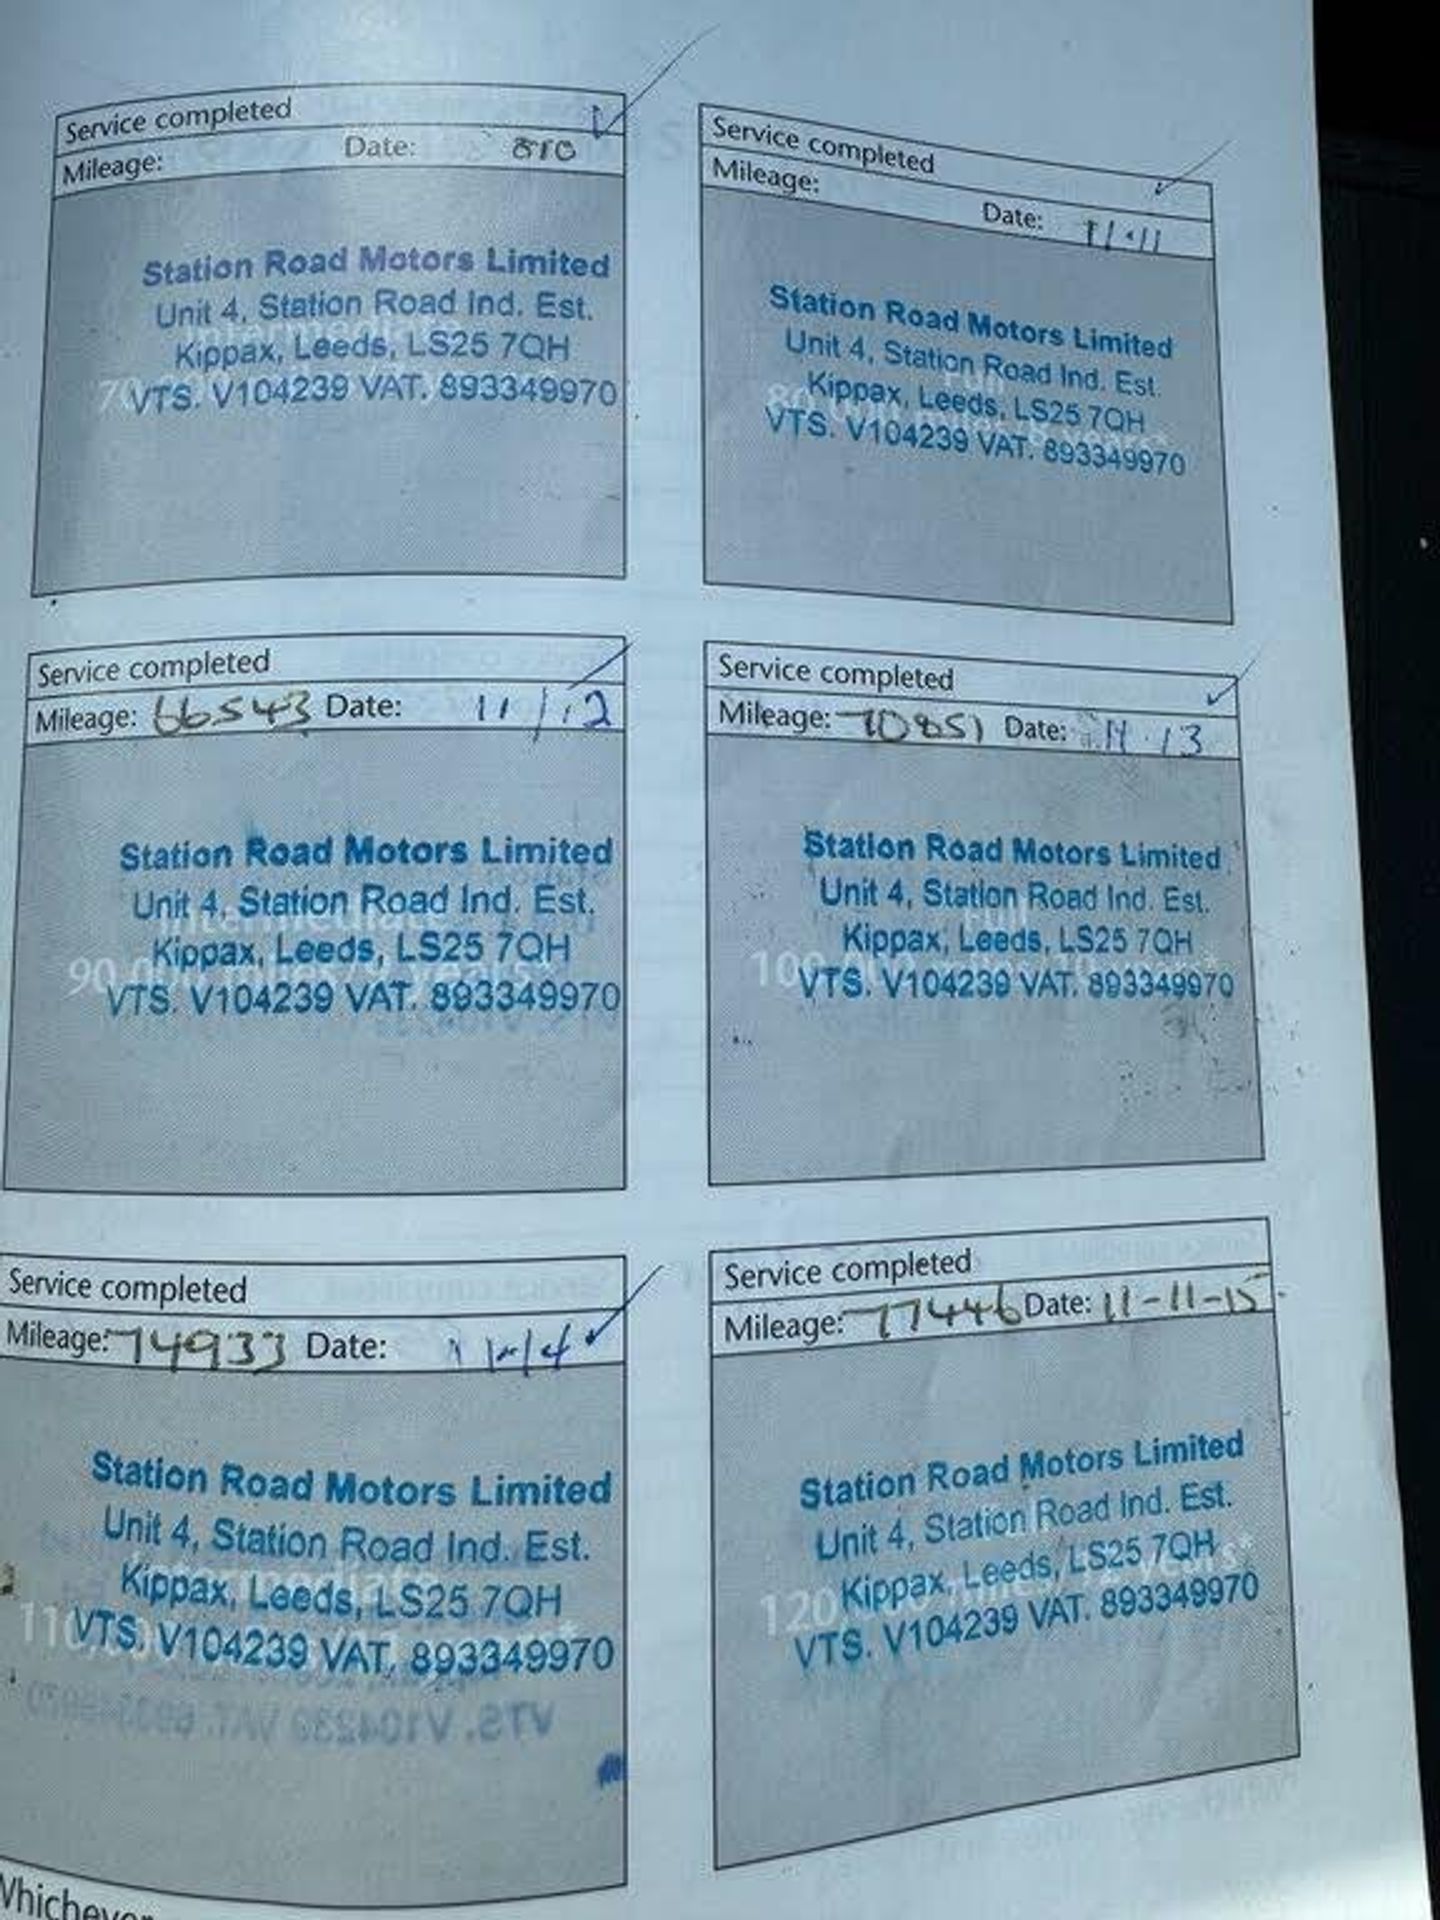 Service completed
Mileage: Date: 810
Station Road Motors Limited
Unit 4, Station Road Ind. Est.
Intermediate
Kippax, Leeds, LS25 7QH
VTS. V104239 VAT. 893349970
Service completed
Mileage: Date: 11.11
Station Road Motors Limited
Unit 4, Station Road Ind. Est.
Full
Kippax, Leeds, LS25 7QH
VTS. V104239 VAT. 893349970
Service completed
Mileage: 66543 Date: 11/12
Station Road Motors Limited
Unit 4, Station Road Ind. Est.
Intermediate
Kippax, Leeds, LS25 7QH
90,000 miles/9 years*
VTS. V104239 VAT. 893349970
Service completed
Mileage: 70851 Date: 11.13
Station Road Motors Limited
Unit 4, Station Road Ind. Est.
Full
Kippax, Leeds, LS25 7QH
VTS. V104239 VAT. 893349970
Service completed
Mileage: 74933 Date:
Station Road Motors Limited
Unit 4, Station Road Ind. Est.
Intermediate
Kippax, Leeds, LS25 7QH
VTS. V104239 VAT. 893349970
Service completed
Mileage: 77446 Date: 11-11-15
Station Road Motors Limited
Unit 4, Station Road Ind. Est.
Kippax, Leeds, LS25 7QH
VTS. V104239 VAT. 893349970
Whichever